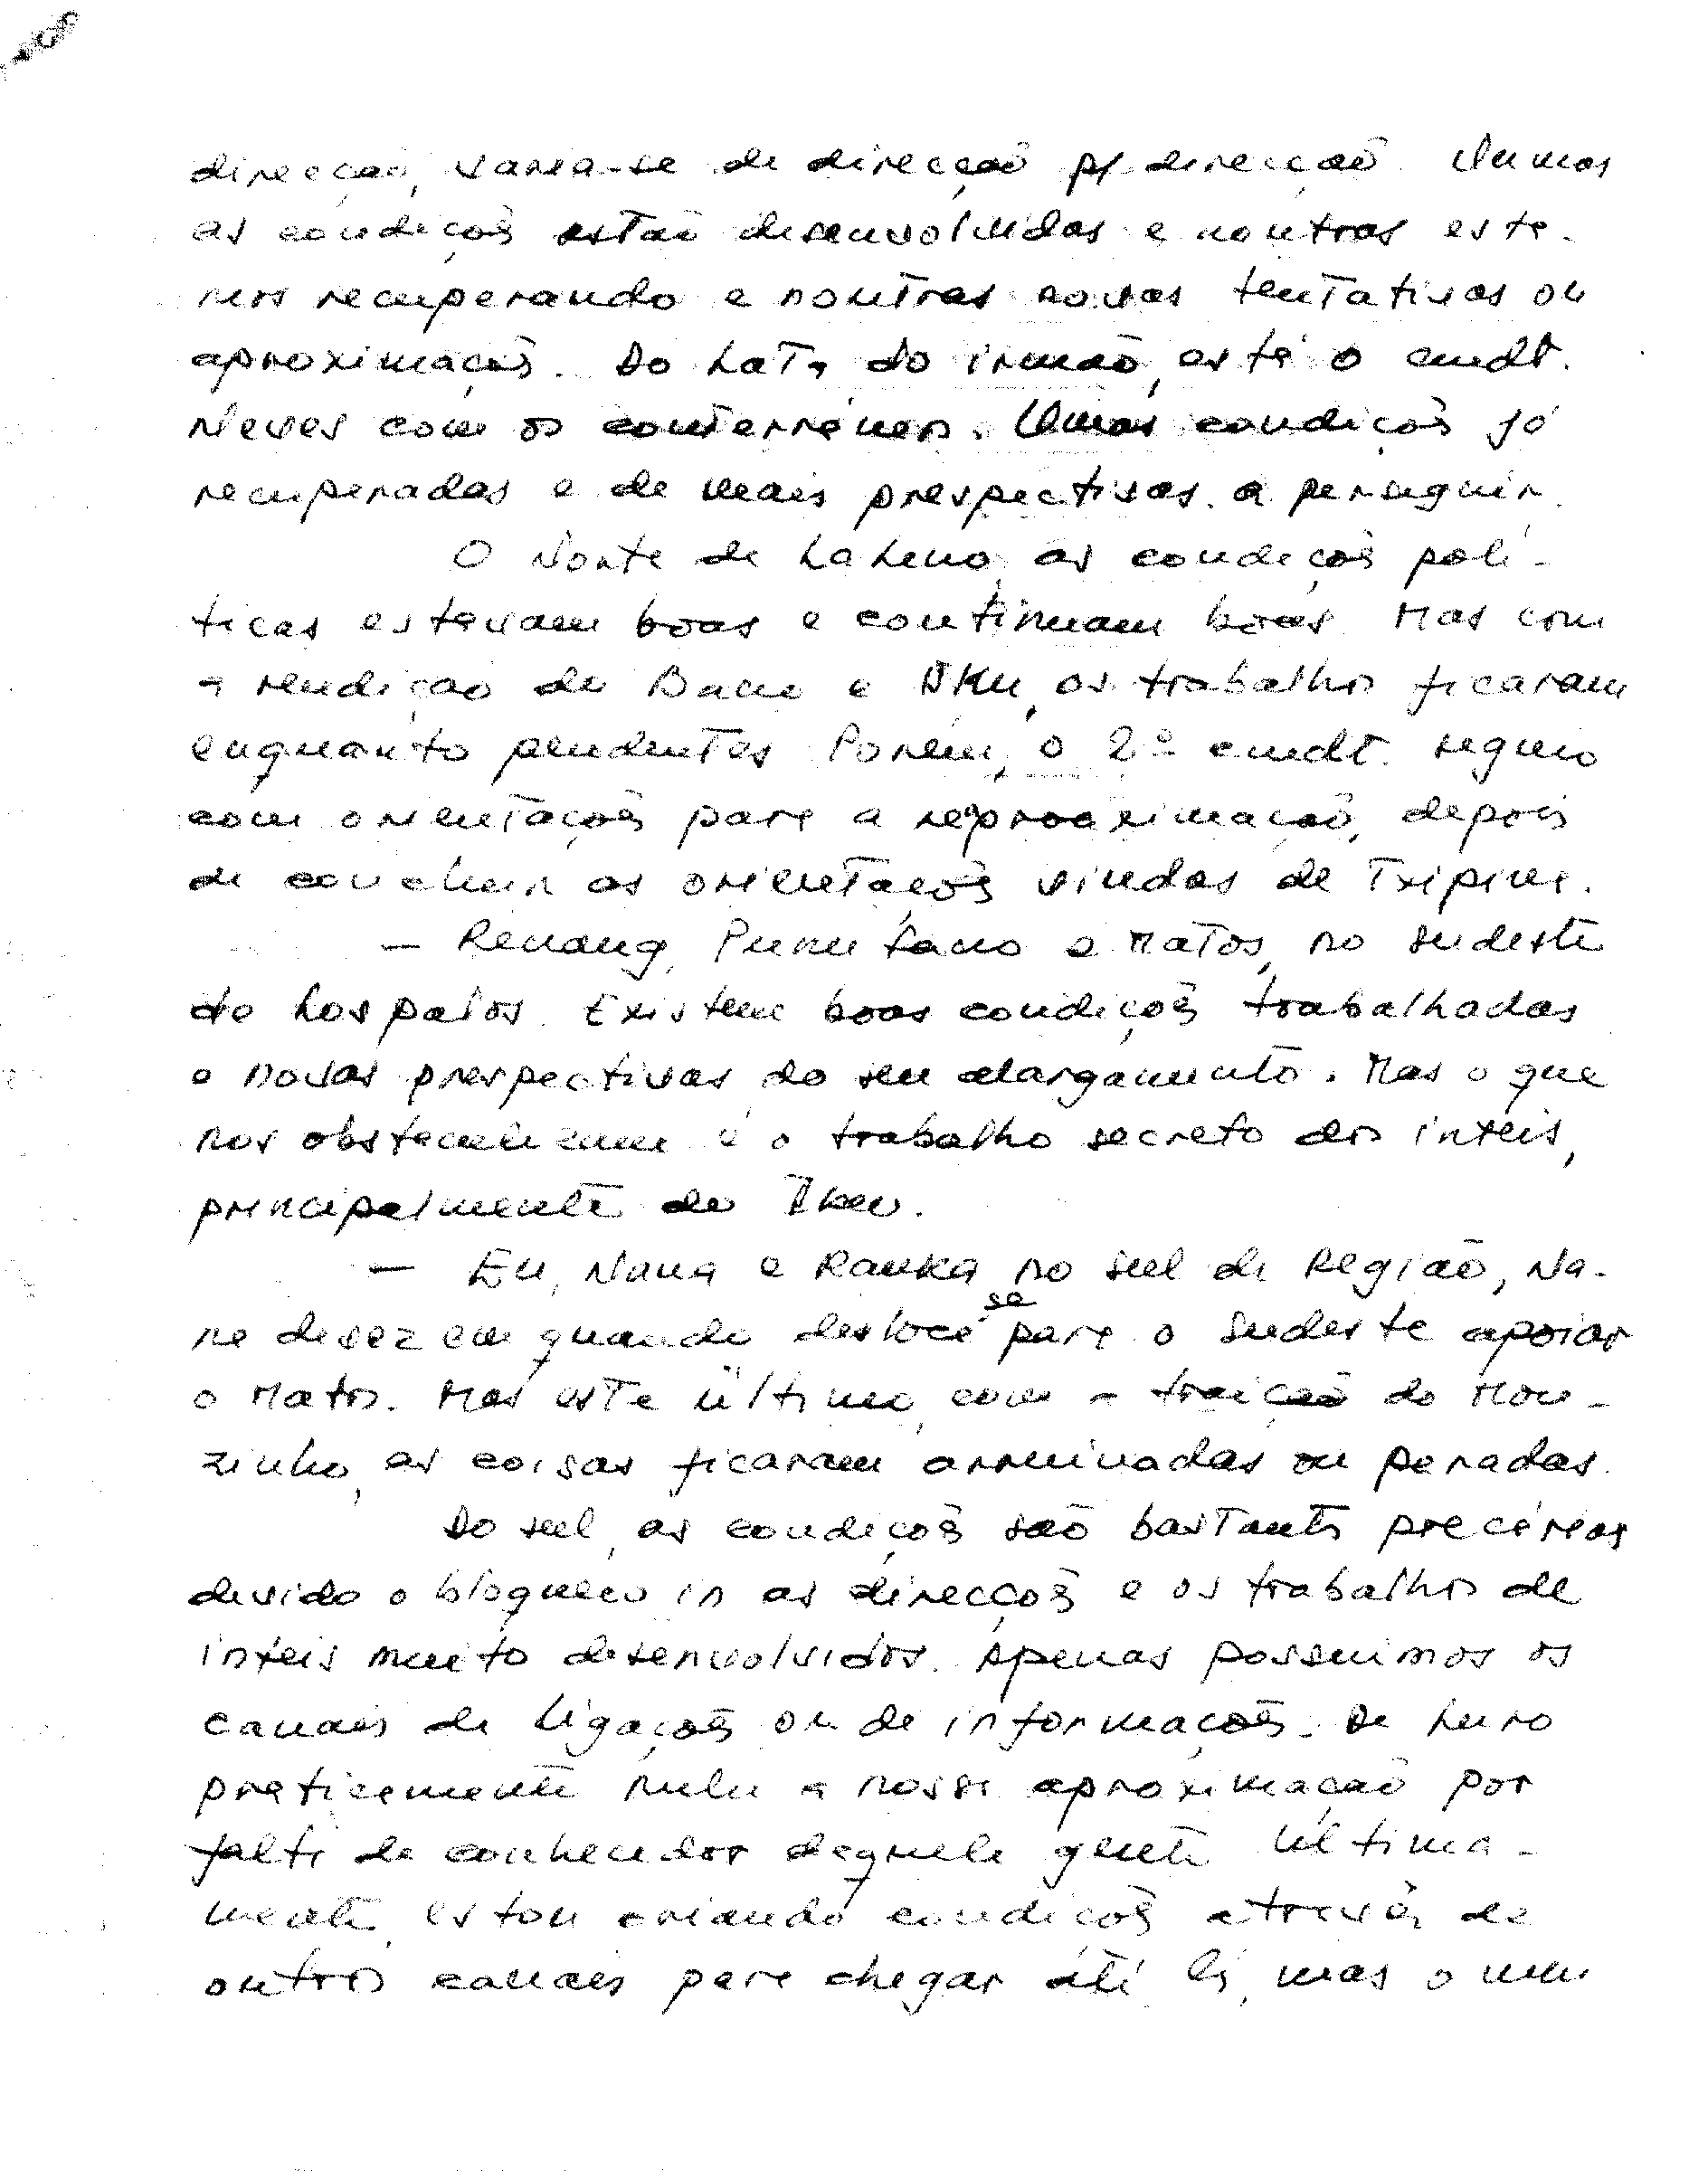 direcção, varia-se de direcção p/ direcção. Numas
as condiçoẽs estaõ desenvolvidas e noutras esta-
mos recuperando e noutras novas tentativas ou
aproximaçoẽs. Do Lat, do irmaõ, está o cmdt.
Neves com os conterrâneos. Umas condiçoẽs já
recuperadas e de mais prespectivas a perseguir.
O Norte de Laleno, as condiçoẽs polí-
ticas estavam boas e continuam boas. Mas com
a rendiçao de e os trabalhos ficaram
enquanto pendentes. Porém, o 2º cmdt. seguiu
com orientaçoẽs para a reaproximaçaõ, depois
de concluir as orientaçoẽs vindas de
— Renang, e Matos, no sudeste
de Lospalos. Existem boas condiçoẽs trabalhadas
e novas prespectivas do seu alargamento. Mas o que
nos obstaculizam é o trabalho secreto dos intéis,
principalmente de
— Eu, Nana e Ranka no sul de Regiaõ, Na-
na de vez em quando desloca se para o Sudeste apoiar
o Matos. Mas este último, com a traiçaõ do Mou-
zinho, as coisas ficaram arruinadas ou paradas.
Do sul, as condiçoẽs saõ bastante precárias
devido o bloqueio in as direcçoẽs e os trabalhos de
intéis muito desenvolvidos. Apenas possuimos os
canais de ligaçoẽs ou de informaçoẽs. De Luro
praticamente nula a nossa aproximaçaõ por
falta de conhecedor daquela gente. Última-
mente, estou criando condiçoẽs através de
outros canais para chegar até lá, mas o meu